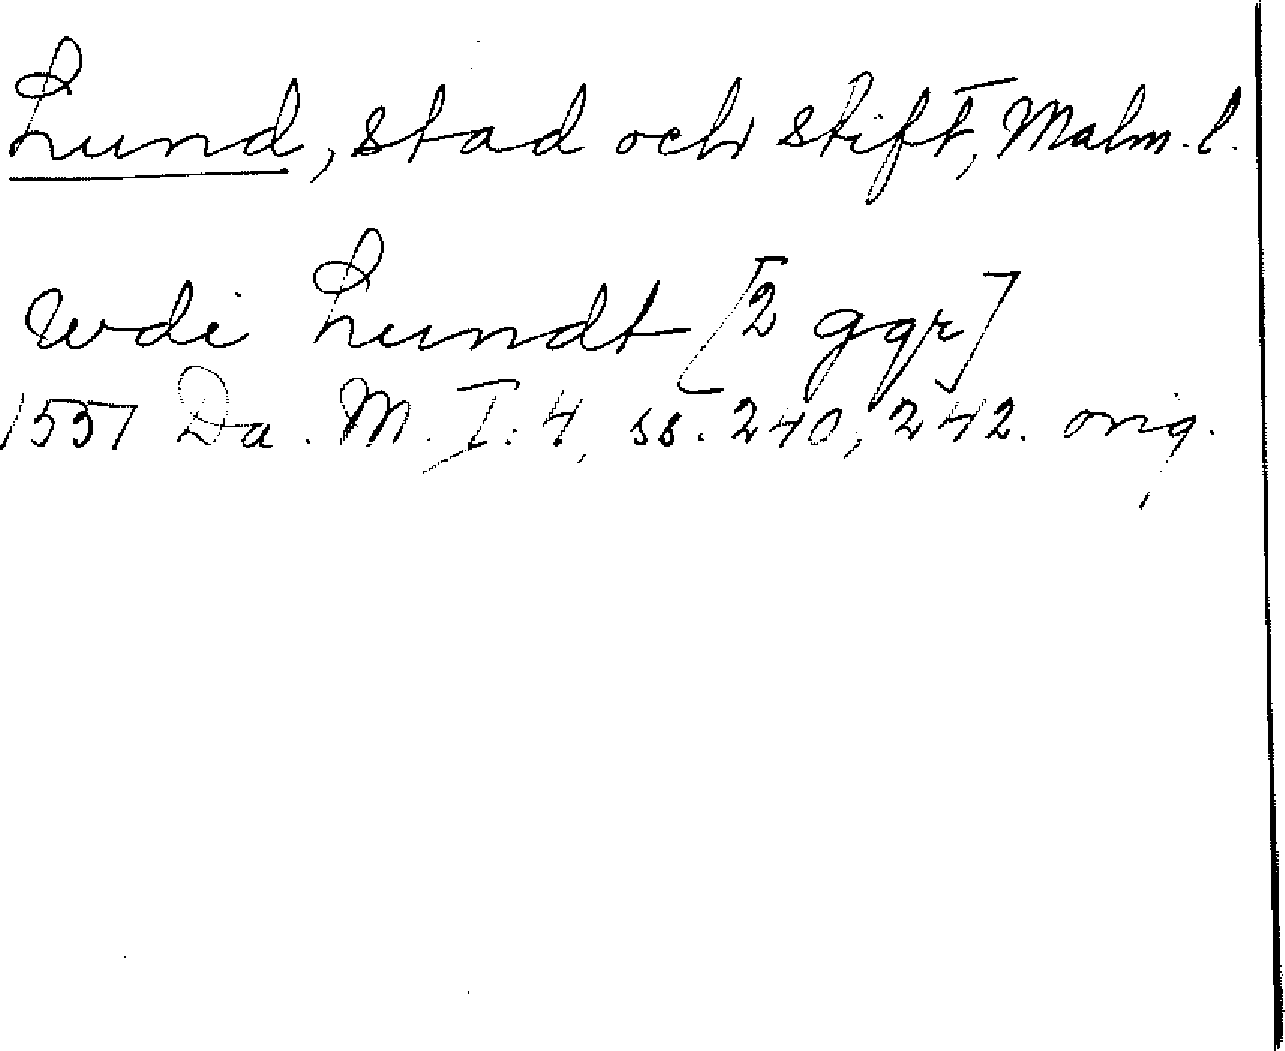 Lund, stad och stift, Malm. l.
wdi Lundt [2 ggr]
1537 Da. M. I: 4, ss. 240, 242. orig.